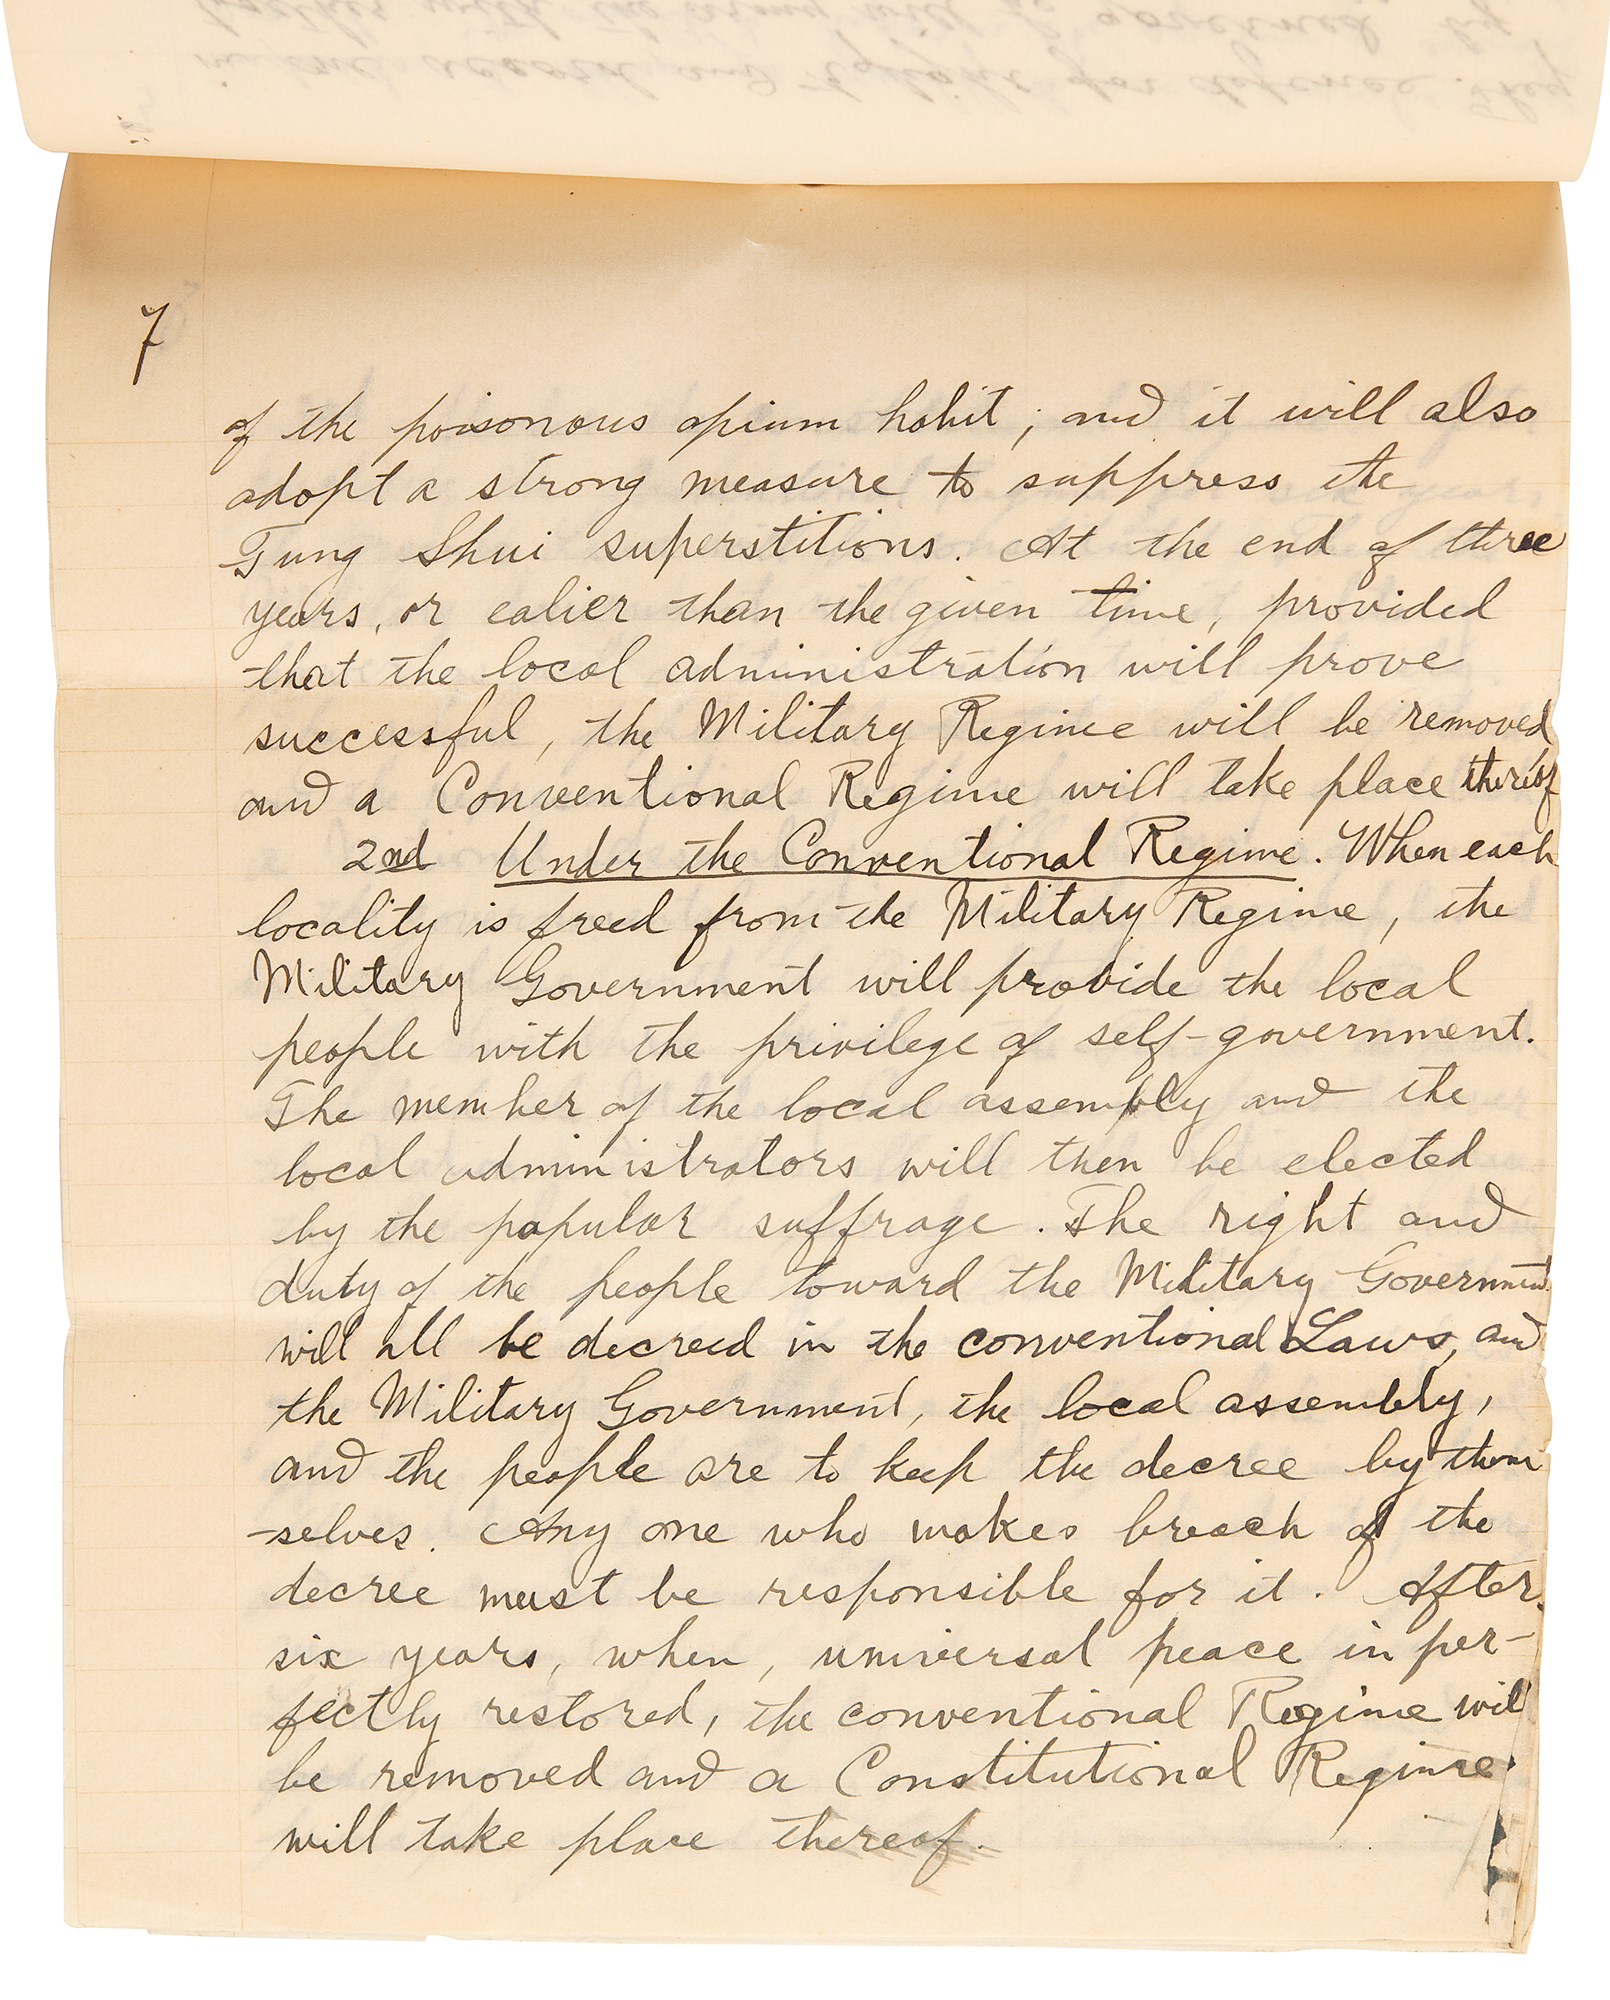 7
of the poisonous opium habit; and it will also
adopt a strong measure to suppress the
Fung Shui superstitions. At the end of three
years, or ealier than the given time, provided
that the local administration will prove
successful, the Military Regime will be removed
and a Conventional Regime will take place thereof
2nd Under the Conventional Regime. When each
locality is freed from the Military Regime, the
Military Government will provide the local
people with the privilege of self-government.
The member of the local assembly and the
local administrators will then be elected
by the popular suffrage. The right and
duty of the people toward the Military Government
will all be decreed in the conventional Laws, and
the Military Government, the local assembly,
and the people are to keep the decree by them
-selves. Any one who makes breach of the
decree must be responsible for it. After
six years, when, universal peace in per-
fectly restored, the conventional Regime will
be removed and a Constitutional Regime
will take place thereof.